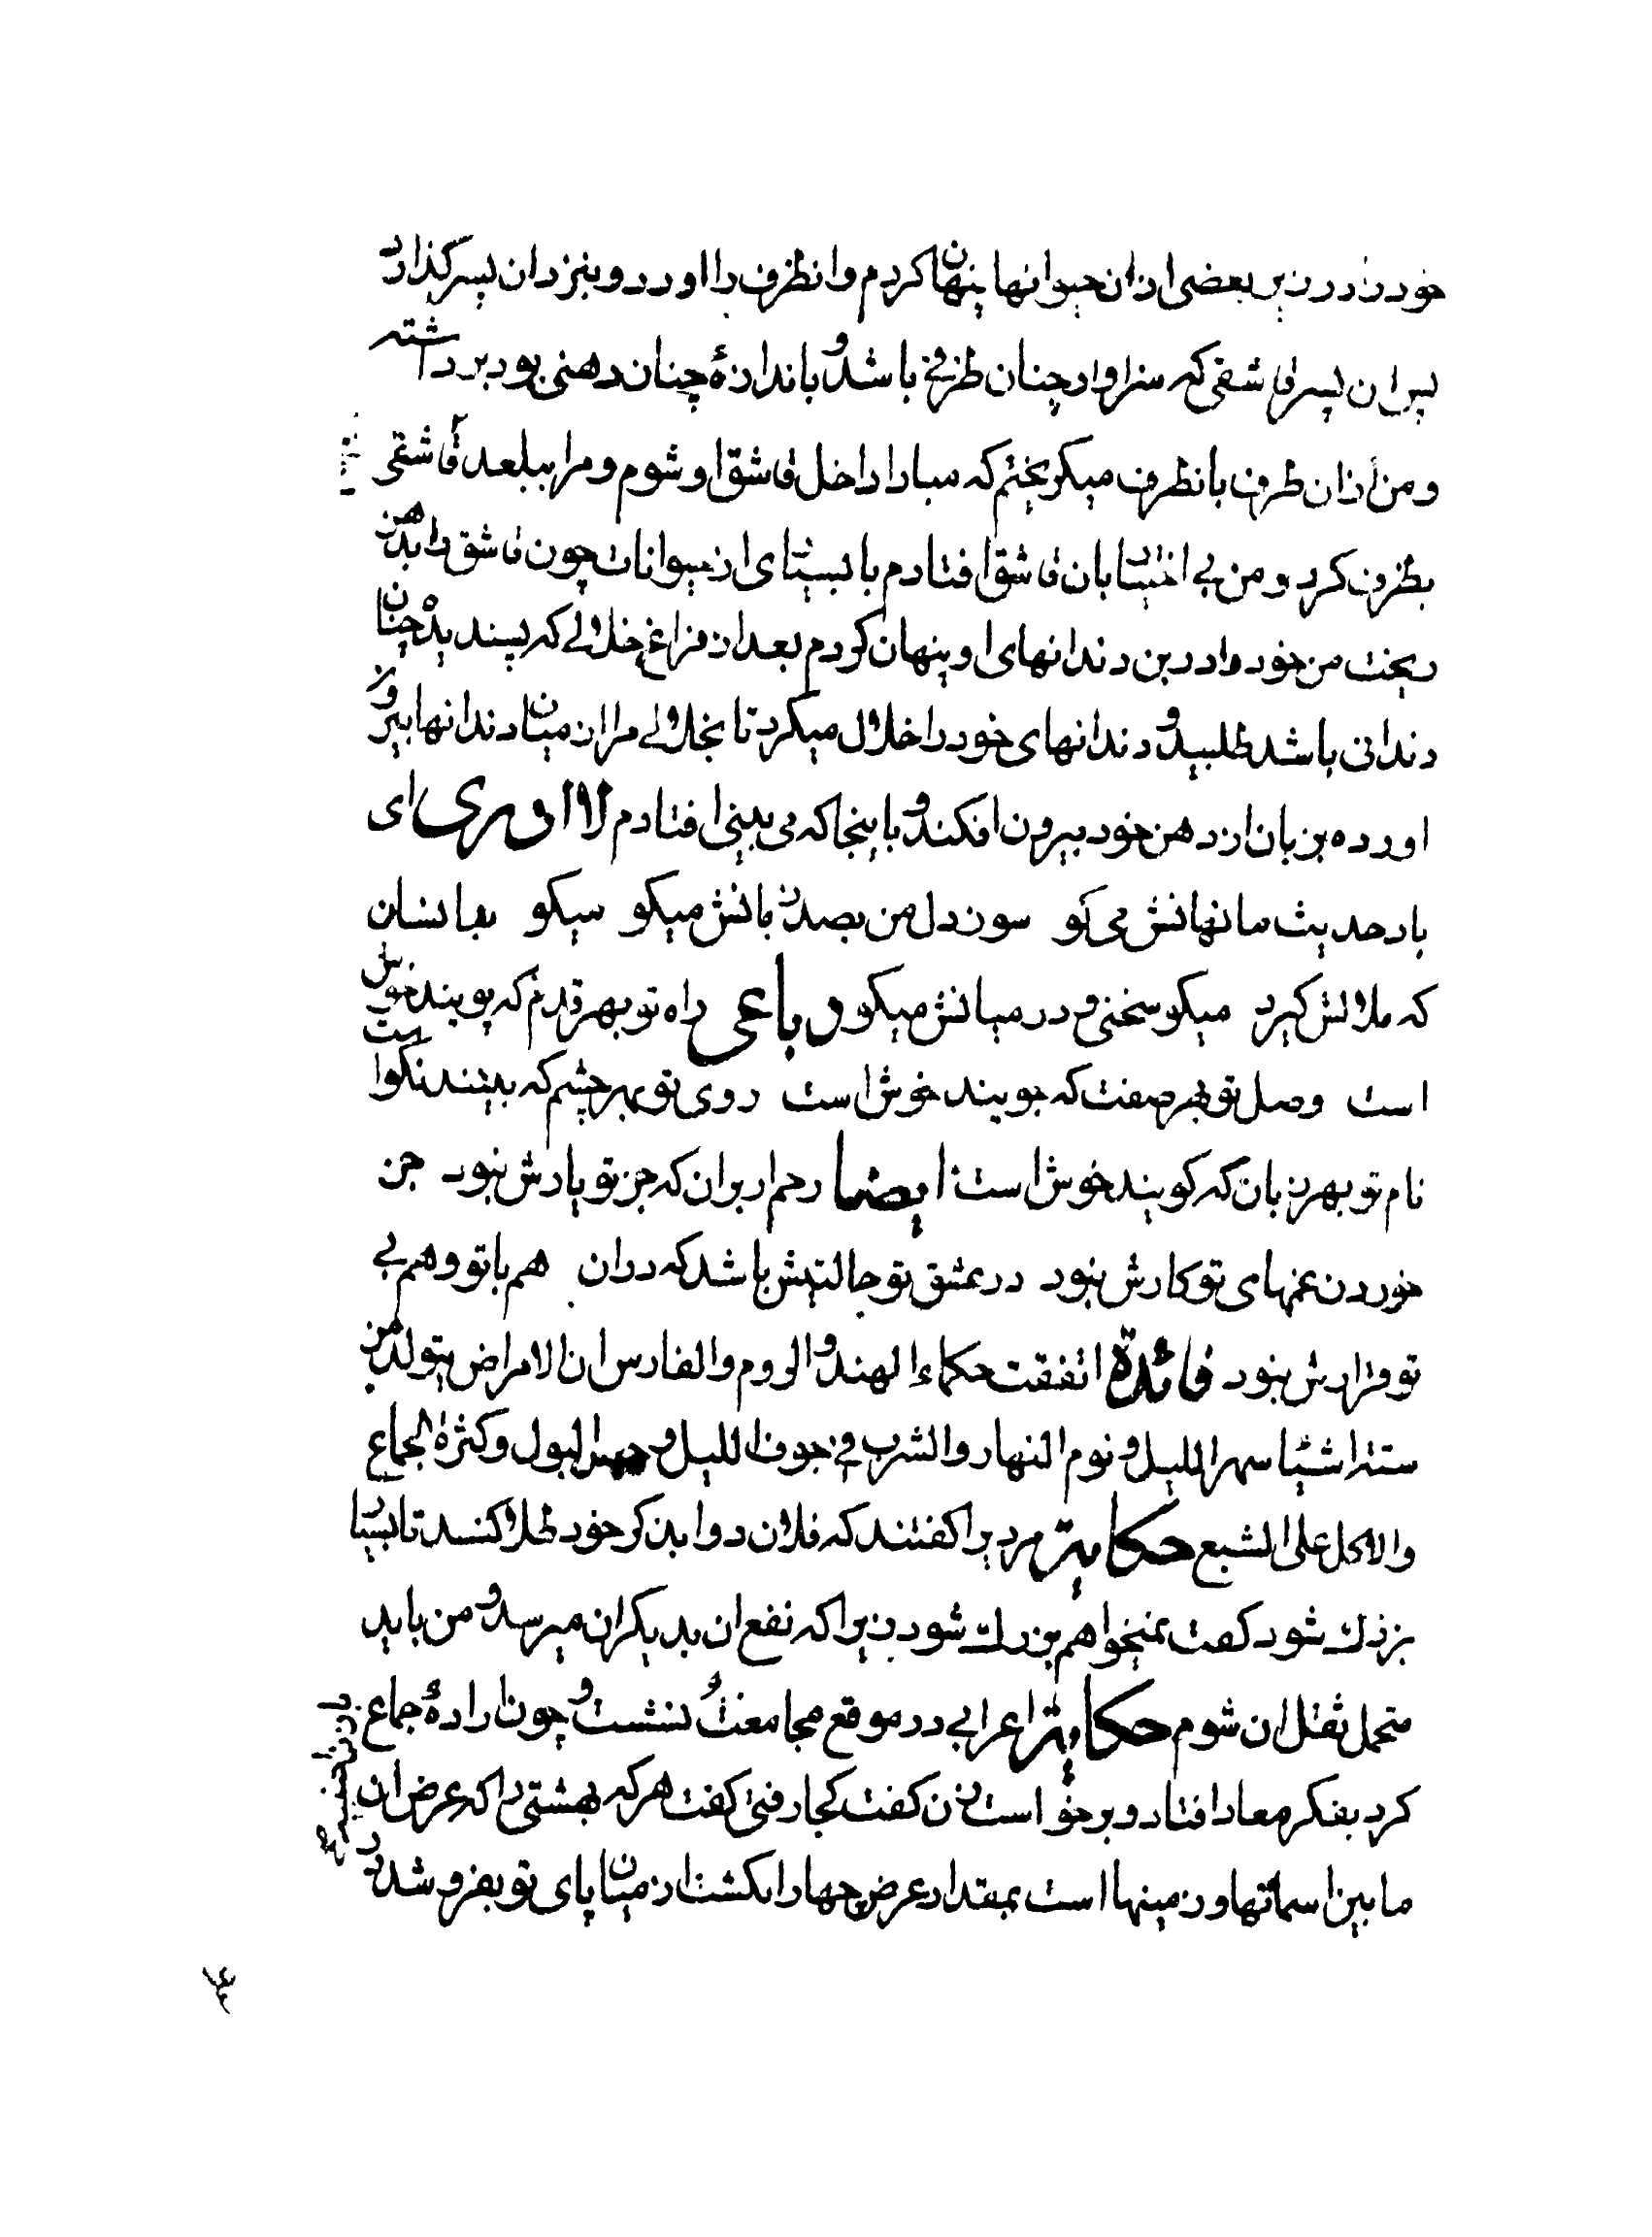 خود را در زیر بعضی از ان حیوانها پنهان کردم وانظرف را اورد و بنزد ان پسر گذارد
پس ان پسر قاشقی که سزاوار چنان ظرفی باشد و باندازهٔ چنان دهنی بود برداشته
و من از ان طرف بانظرف میکریختم که مبادا داخل قاشق او شوم و مرا ببلعد قاشقی
بظرف کرد و من بی اختیار بان قاشق افتادم با بسیاری از حیوانات چون قاشق را بدهن
ریخت من خود را در بن دندانهای او پنهان کردم بعد از فراغ خلالی که پسندیدهٔ چنان
دندانی باشد طلبید و دندانهای خود را خلال میکرد تا بخلالی مرا از میان دندانها بیرون
اورده بزبان از دهن خود بیرون افکند و باینجا که می بینی افتادم لا ادری ای
باد حدیث ما نهانش می کو سوز دل من بصد زبانش میکو میکو نه بدانسان
که ملالش کیرد میکو سخنی و در میانش میکو رباعی راه تو بهر قدم که پویند خوش
است وصل تو بهر صفت که جویند خوش است روی تو بهر چشم که بینند نکوا ست
نام تو بهر زبان که کویند خوش است ایضا رحم ار بران که جز تو یارش نبود جز
خوردن غمهای تو کارش نبود در عشق تو حالتیش باشد که دران هم با تو و هم بی
تو قرارش نبود فائدة اتفقت حکماء الهند والروم والفارس ان الامراض یتولد من
ستة اشیا سهر اللیل و نوم النهار والشرب فی جوف اللیل و حبس البول و کثرة الجماع
والاکل علی الشبع حکایة مردیرا کفتند که فلان دوا بذکر خود طلا کند تا بسیار
بزرک شود کفت نمیخواهم بزرک شود زیرا که نفع ان بدیکران میرسد و من باید
متحمل ثقل ان شوم حکایة اعرابی در موقع مجامعت نشست و چون ارادهٔ جماع
کرد بفکر معاد افتاد و برخواست زن کفت کجا رفتی کفت هر که بهشتی را که عرض ان
ما بین اسمانها و زمینها است بمقدار عرض چهار انکشت از میان پای تو بفروشد